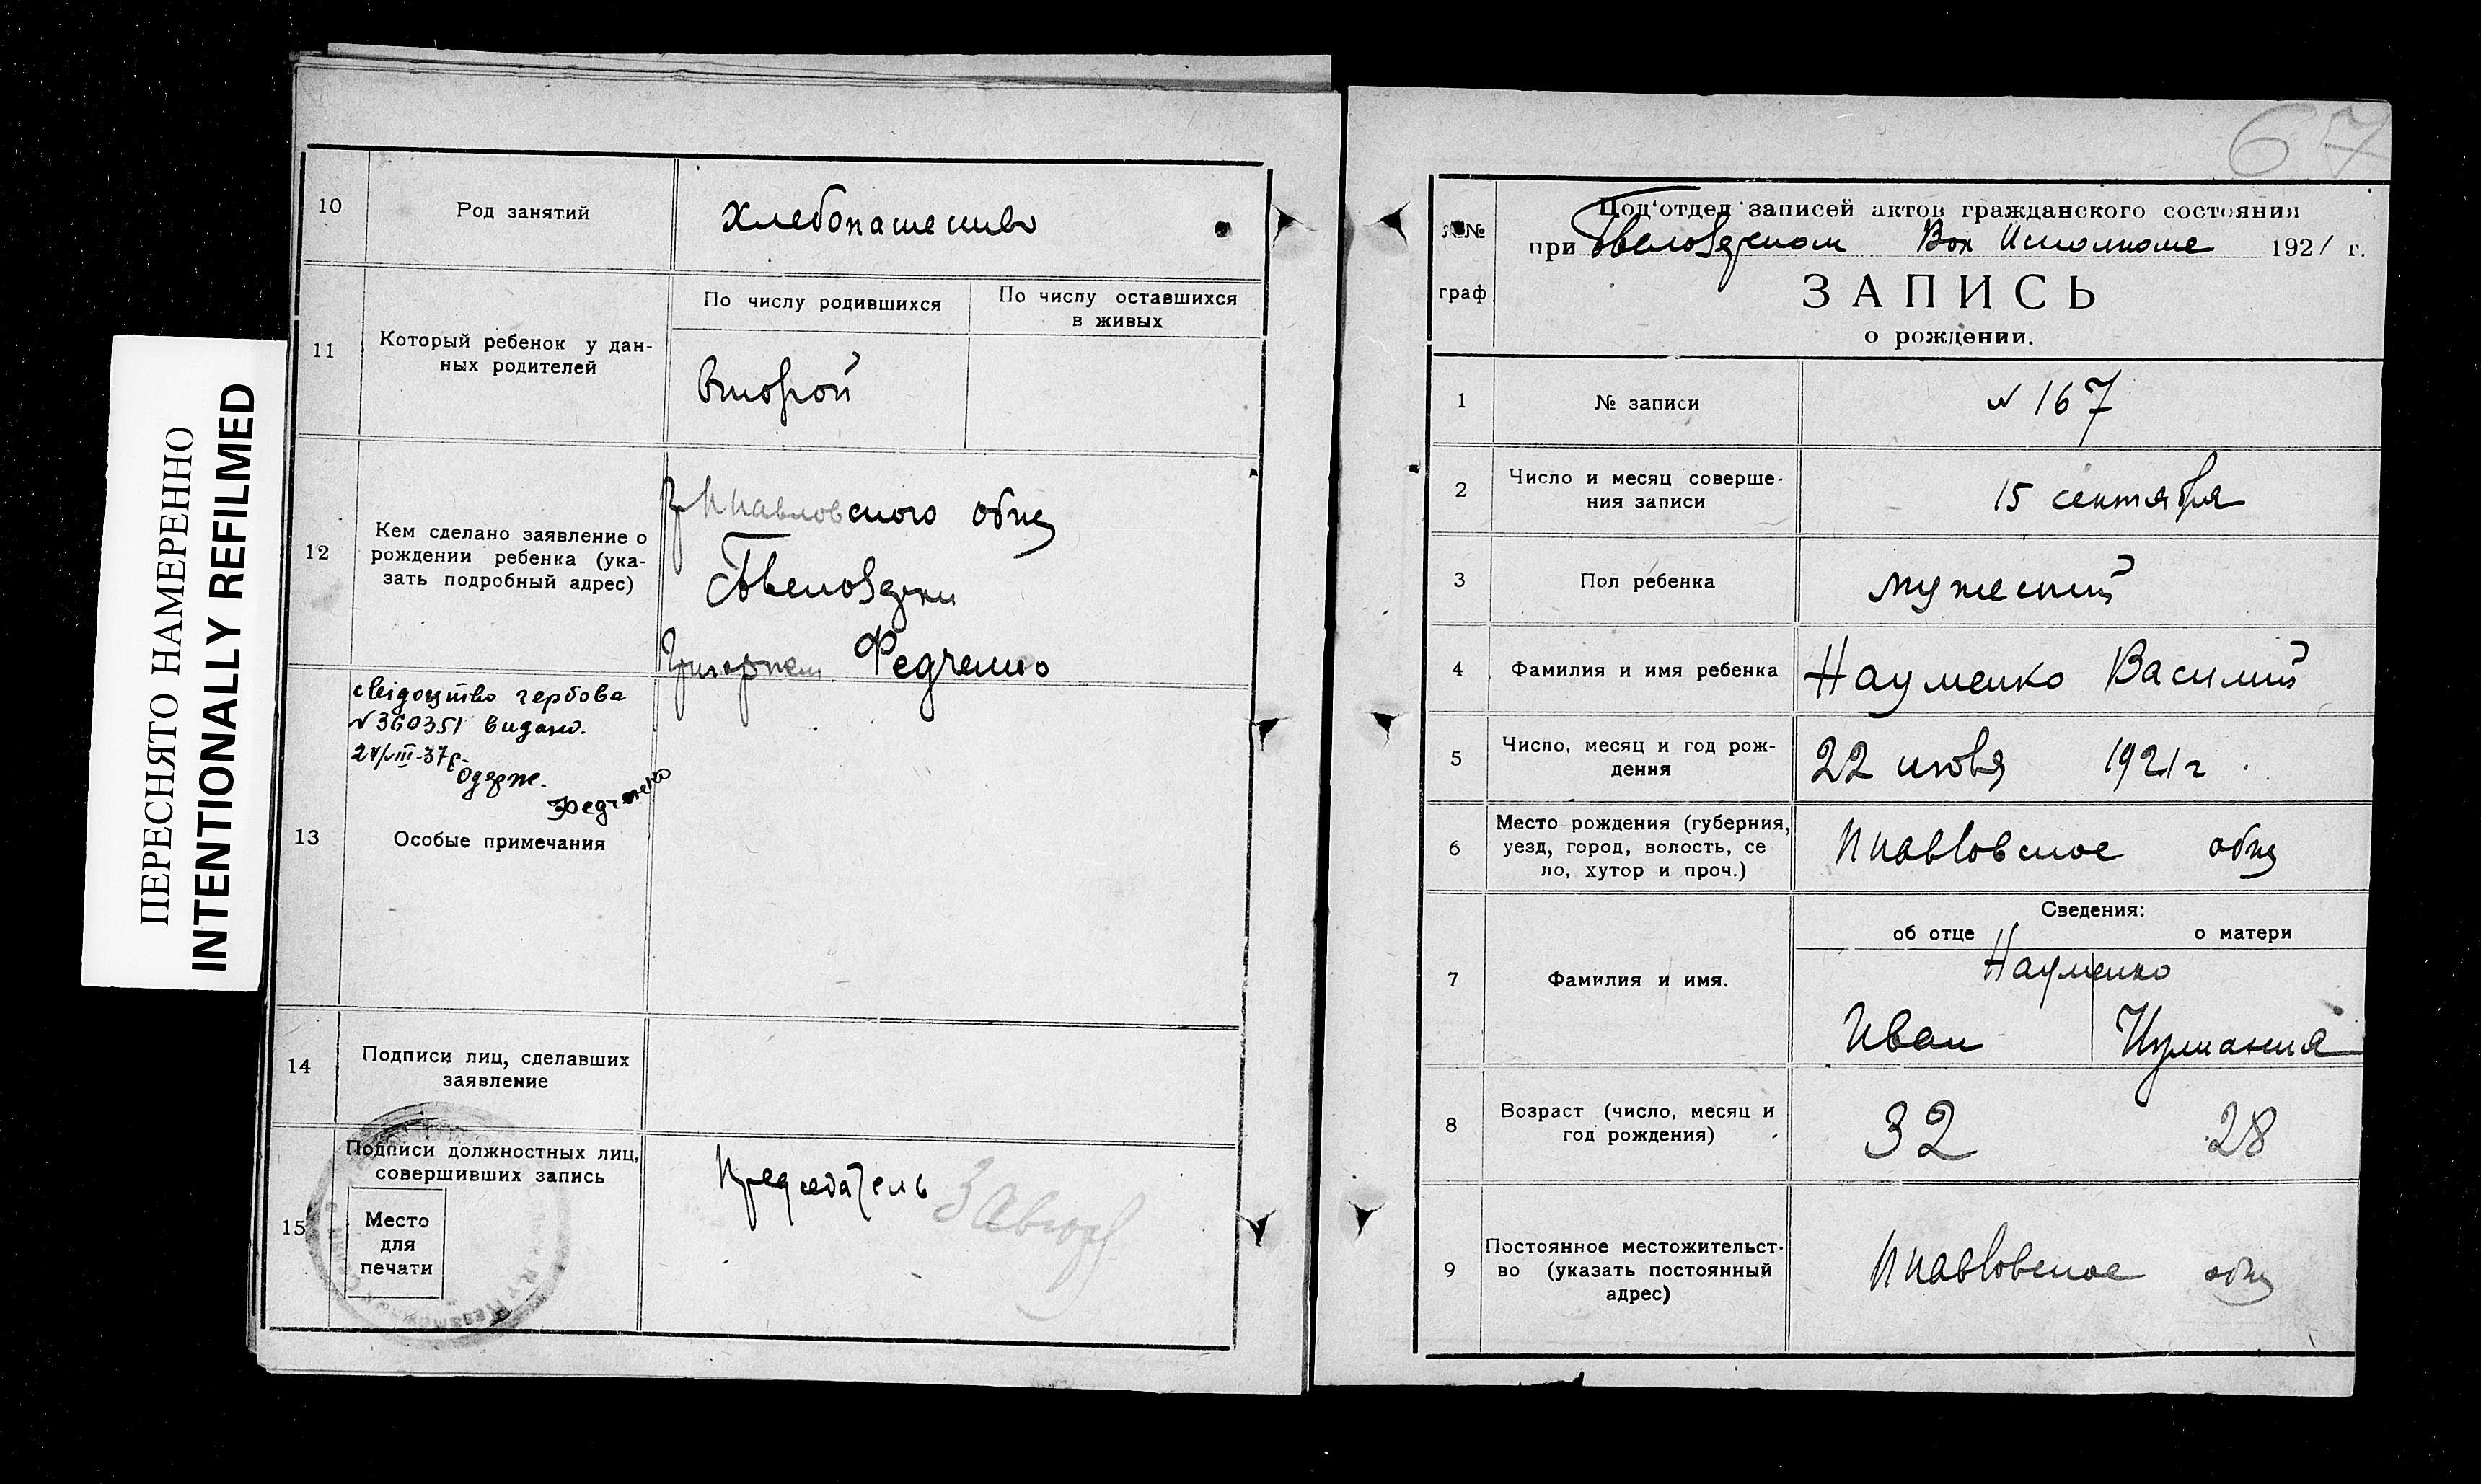 ПЕРЕСНЯТО НАМЕРЕННО
INTENTIONALLY REFILMED
10
Род занятий
хлебопашество
11
Который ребенок у дан-
ных родителей
По числу родившихся
По числу оставшихся
в живых
второй
12
Кем сделано заявление о
рождении ребенка (ука-
зать подробный адрес)
общ
Григорием Федченко
свідоцтво гербова
№ 360351 видано.
24/VIII-37р.
Одерж.
Федченко
13
Особые примечания
14
Подписи лиц, сделавших
заявление
15
Подписи должностных лиц,
совершивших запись
Место
для
печати
Председатель
67
№№
граф
Под'отдел записей актов гражданского состояния
при Вол Исполкоме 1921 г.
ЗАПИСЬ
о рождении.
1
№ записи
№ 167
2
Число и месяц соверше-
ния записи
15 сентября
3
Пол ребенка
мужеский
4
Фамилия и имя ребенка
Науменко Василий
5
Число, месяц и год рож-
дения
22 1921 г.
6
Место рождения (губерния,
уезд, город, волость, се
ло, хутор и проч.)
общ
Сведения:
об отце
о матери
7
Фамилия и имя.
Науменко
Иван
8
Возраст (число, месяц и
год рождения)
32
28
9
Постоянное местожительст-
во (указать постоянный
адрес)
общ